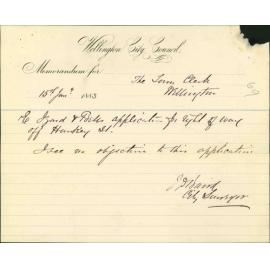 Wellington City Council.
Memorandum for
The Town Clerk
15th Jany. 1883
Wellington
& Bell's application for right of way
off Hankey St.
I see no objection to this application
J D Baird
City Surveyor